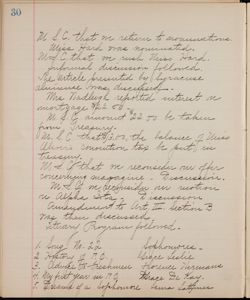 30
M S C. that we return to nominations.
Miss Hard was nominated.
M S C that we rush Miss Hard.
Informal discussion followed.
The Article presented by Syracuse
alumnae was discussed.
Mrs. Hadleigh reported interest on
mortgage $22.50.
M S C amount $22.50 be taken
from treasury.
M. S. C. that $7.00, the balance of Miss
convention tax be put in
treasury.
M S D that we reconsider our offer
concerning magazine. Discussion.
M S C we reconsider our motion
on Alpha Stars. Discussion
Amendment to Art. II. Section 3
was then discussed.
Literary Program followed.
1. Song No. 22 Sophomores.
2. History of
3. Advice to Freshmen Florence
4. My first year in
5. of a Sophomore